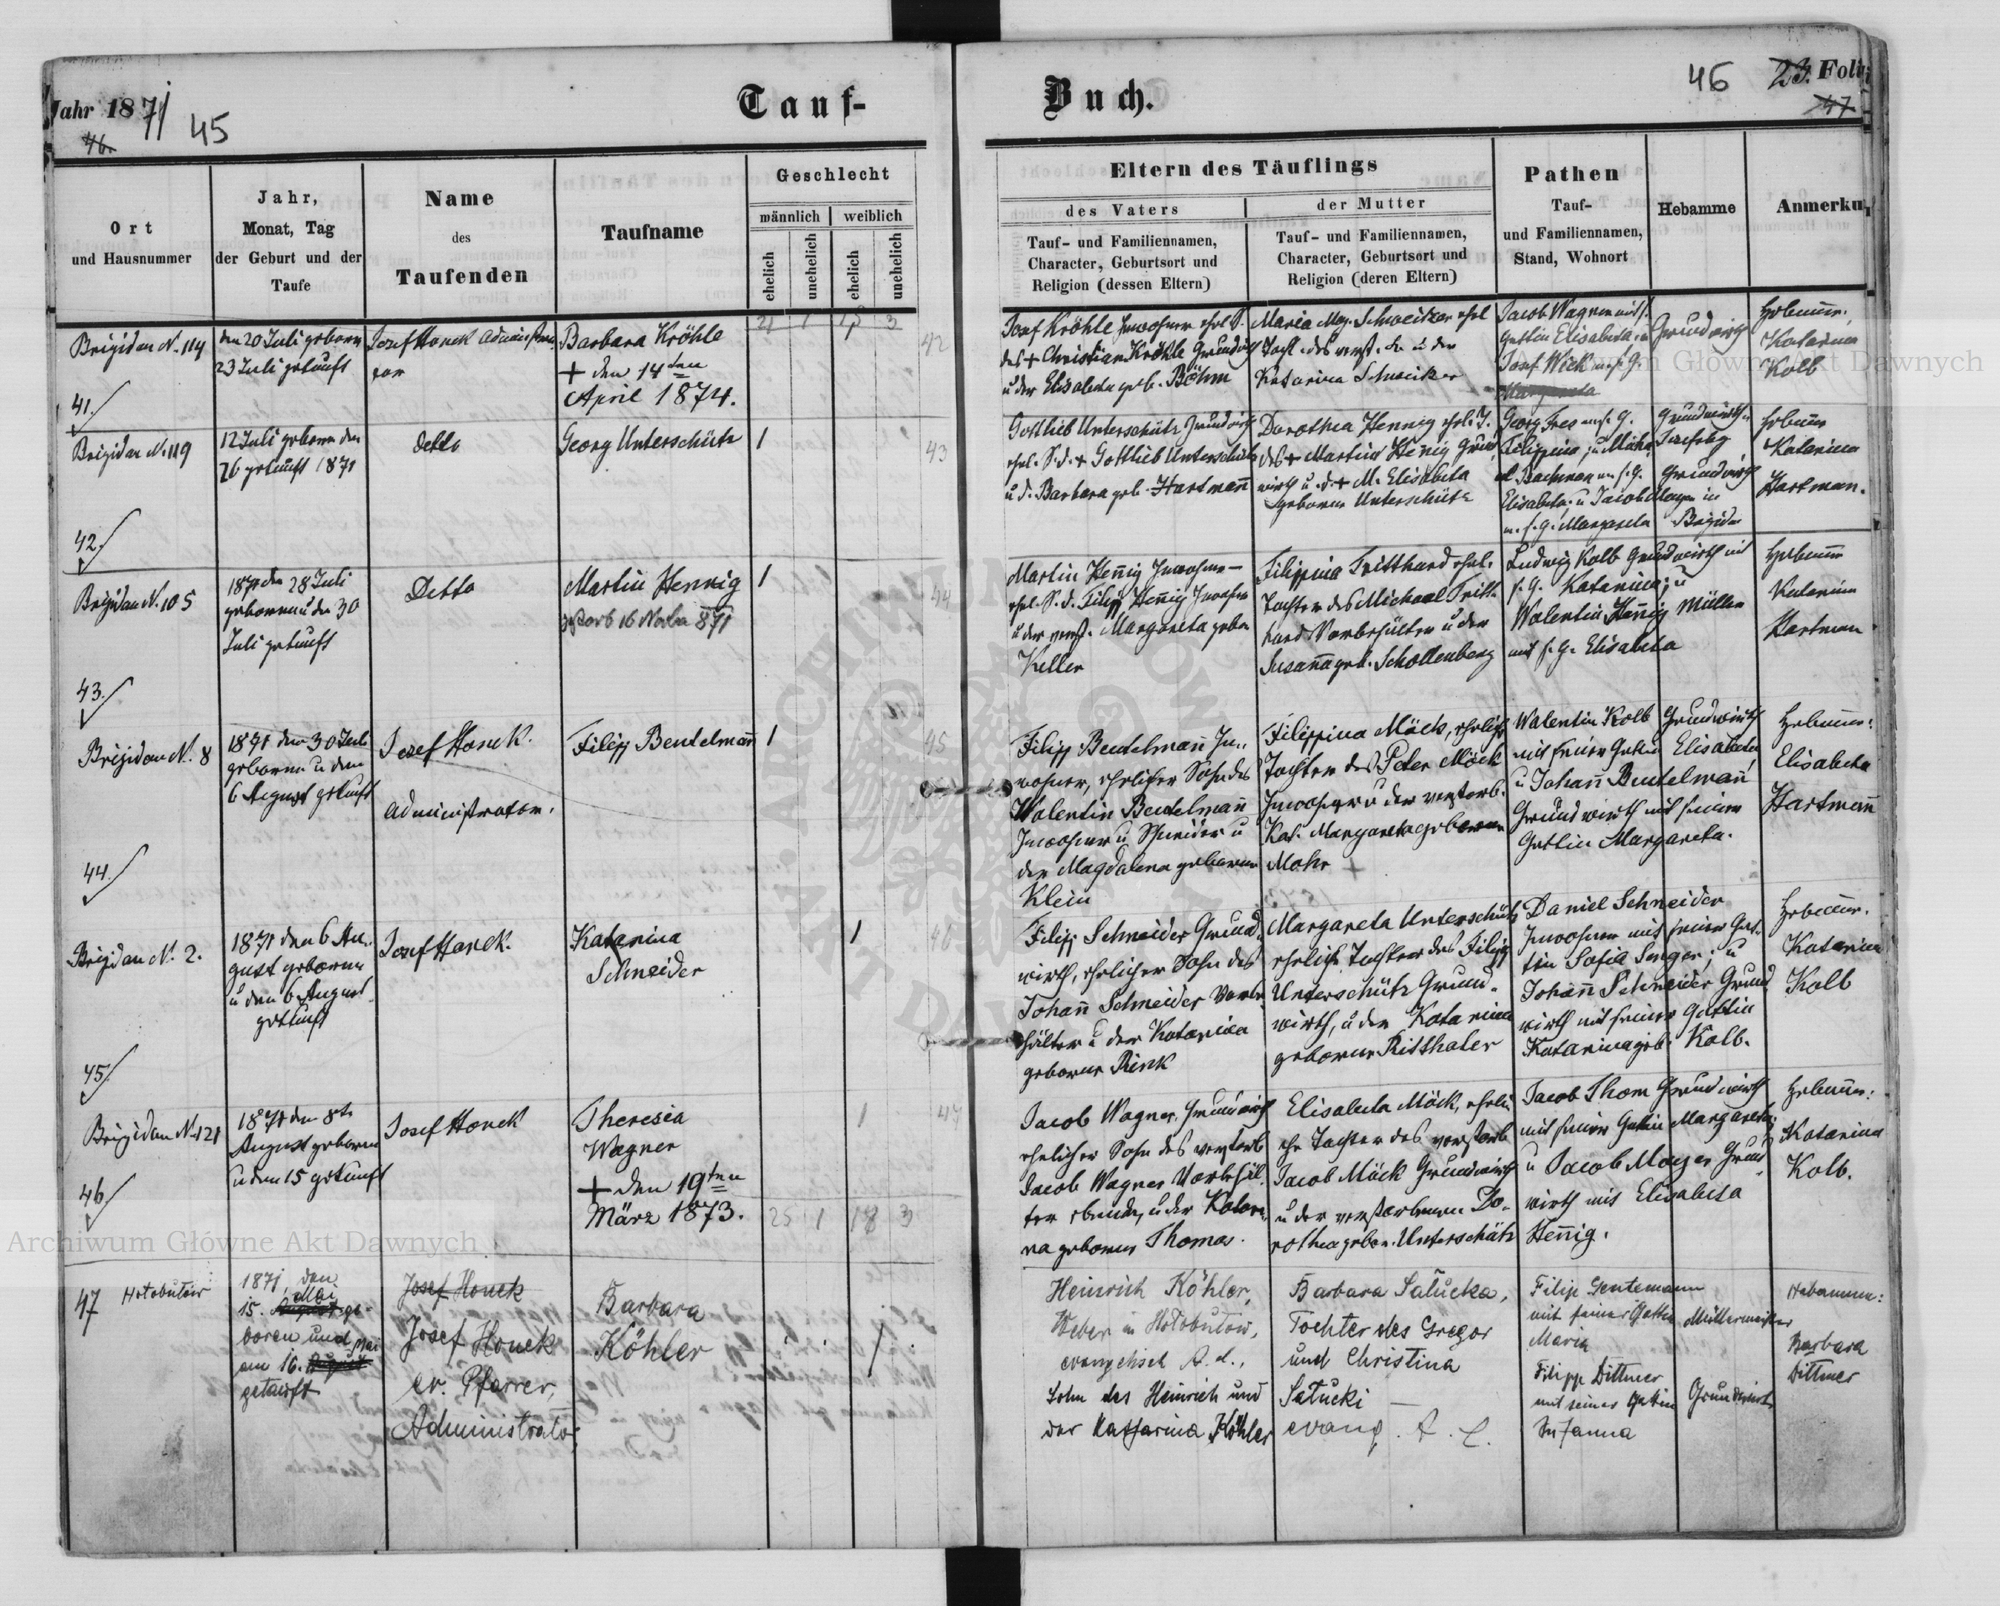 Jahr 1871
45
46.
Tauf-
Buch.
46
23. Folio
47.
Ort
und Hausnummer
Jahr,
Monat, Tag
der Geburt und der
Taufe
Name
des
Taufenden
Taufname
Geschlecht
männlich
weiblich
ehelich
unehelich
ehelich
unehelich
Eltern des Täuflings
des Vaters
Tauf- und Familiennamen,
Character, Geburtsort und
Religion (dessen Eltern)
der Mutter
Tauf- und Familiennamen,
Character, Geburtsort und
Religion (deren Eltern)
Pathen
Tauf-
und Familiennamen,
Stand, Wohnort
Hebamme
Anmerku
Brigidau N. 114
41.
den 20 Juli geboren
23 Juli getauft
Josef Honek Administra
tor
Barbara Kröhle
+ den 14ten
April 1874.
21 1 3
42
Josef Kröhle Inwohner ehel. S.
des + Christian Kröhle Grundw
u der Elisabeta geb. Böhm
Maria Mag. Schweitzer ehel
Tocht. des verst. u der
Katarina Schweitzer
Jacob Wagner mit s.
Gattin Elisabeta, u
Josef Wick m. s. G.
Margareta
Grundwirth
Hebamme.
Katarina
Kolb
Brigidau N. 119
42.
12 Juli geboren den
16 getauft 1871
detto
Georg Unterschütz
1
43
Gottlieb Unterschütz Grundwirth
ehel. S. d. + Gottlieb Unterschütz
u d. Barbara geb. Hartmann
Dorothea Hennig ehel. T.
des + Martin Henig Grund
wirth u. d. + M. Elisabeta
geborene Unterschütz
Georg m. s. G.
Filippina, u Micha
el Bachman m. s. G.
Elisabeta, u Jacob Mayer in
m. s. G. Margareta
Grundwirth
Grundwirth
Brigidau
Hebamme
Katarina
Hartman.
Brigidau N. 105
43.
1871 den 28 Juli
geboren u den 30
Juli getauft
Detto
Martin Hennig
gestorb 16 871
1
44
Martin Hennig Inwohner
ehel. S. d. Filipp Hennig Inwohner
u der verst. Margareta gebor
Keller
Filippina Tritthard ehel.
Tochter des Michael Tritt
hard Vorbehälter u der
Susanna geb. Schollenberg
Ludwig Kolb Grundwirth mit
s. G. Katarina; u
Walentin Hennig Müller
mit s. G. Elisabeta
Hebamme
Katarina
Hartman
Brigidau N. 8
44.
1871 den 30 Juli
geboren u den
6 August getauft
Josef Honek.
Administrator.
Filipp Beutelmann
1
45
Filipp Beutelmann In-
wohner, ehelicher Sohn des
Walentin Beutelmann
Inwohner u Schneider u
der Magdalena geborene
Klein
Filippina Möck, ehelich
Tochter des Peter Möck
Inwohner u der verstorb.
Kat. Margareta geborene
Mohr +
Walentin Kolb Grundwirth
mit seiner Gattin Elisabeta
u Johann Beutelmann
Grundwirth mit seiner
Gattin Margareta.
Hebamme:
Elisabeta
Hartmann
Brigidau N. 2.
45.
1871 den 6 Au-
gust geboren
u den 6 August
getauft
Josef Honek.
Katarina
Schneider
1
46
Filipp Schneider Grund-
wirth, ehelicher Sohn des
Johann Schneider Vorbe
hälter u der Katarina
geborene Rink
Margareta Unterschütz
eheliche Tochter des Filipp
Unterschütz Grund-
wirth, u der Katarina
geborene Ritthaler
Daniel Schneider
Inwohner mit seiner Gat-
tin Sofia Senger; u
Johann Schneider Grund
wirth mit seiner Gattin
Katarina geb. Kolb.
Hebamme.
Katarina
Kolb
Brigidau N. 121
46
1871 den 8te
August geboren
u den 15 getauft
Josef Honek
Theresia
Wagner
+ den 19ten
März 1873.
1
25 1 18 3
47
Jacob Wagner, Grundwirth
ehelicher Sohn des verstorb
Jacob Wagner Vorbehäl-
ter u der Katari-
na geborene Thomas.
Elisabeta Möck, eheli-
che Tochter des verstorb
Jacob Möck Grundwirth
u der verstorbenen Do-
rothea gebor. Unterschütz
Jacob Thom Grundwirth
mit seiner Gattin Margareta;
u Jacob Mayer Grund-
wirth mit Elisabeta
Hennig.
Hebamme:
Katarina
Kolb.
47
Hołobutów
1871, den
Mai
15. August ge-
boren und
Mai
am 16. August
getauft
Josef Honek
Josef Honek
ev. Pfarrer,
Administrator.
Barbara
Köhler
1
Heinrich Köhler,
Weber in Hołobutów,
evangelisch A. C.,
Sohn des Heinrich und
der Katharina Köhler
Barbara Sałucka,
Tochter des Gregor
und Christina
Sałucki
evang. A. C.
Filip Gentemann
mit seiner Gattin
Maria
Müllermeister
Filipp Dittmer
mit seiner Gattin
Susanna
Grundwirth
Hebamme:
Barbara
Dittmer
Archiwum Główne Akt Dawnych
Archiwum Główne Akt Dawnych